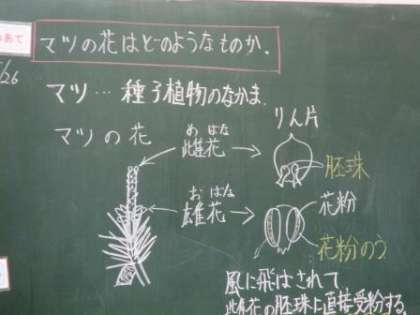 めあて
マツの花はどのようなものか.
/26
マツ…種子植物のなかま.
マツの花
りん片
めばな
雌花
胚珠
おばな
雄花
花粉
花粉のう
風に飛ばされて
雌花の胚珠に直接受粉する.